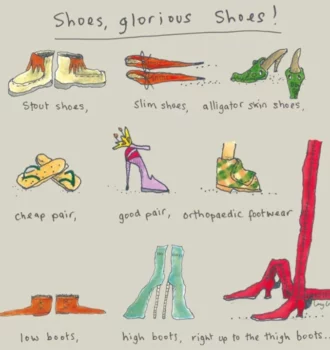 Shoes, glorious Shoes!
Stout shoes, slim shoes, alligator skin shoes,
cheap pair, good pair, orthopaedic footwear
low boots, high boots, right up to the thigh boots..